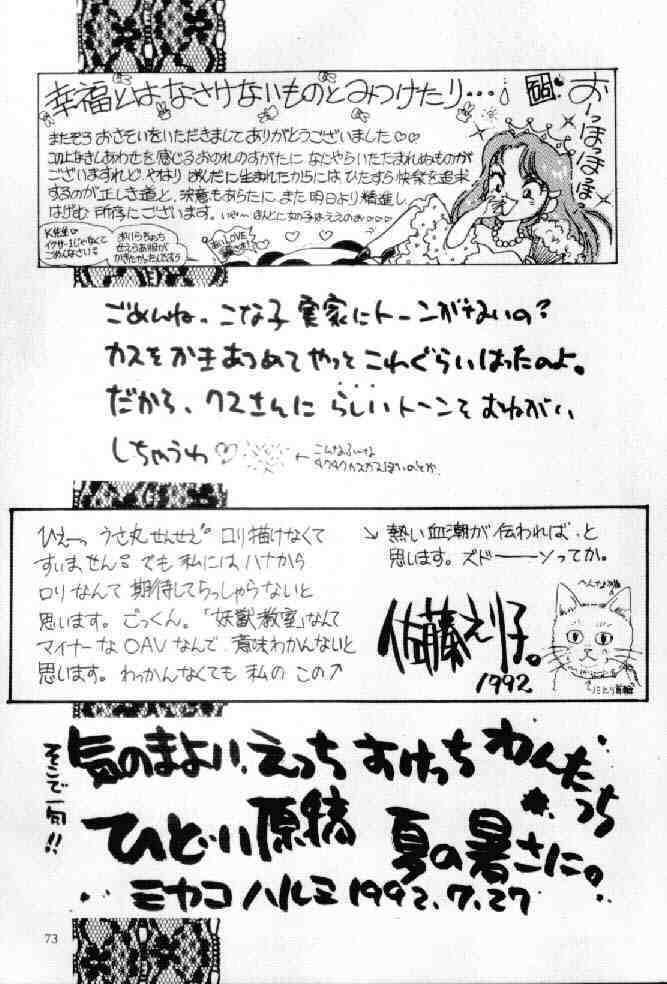 幸福とは、なさけないものとみつけたり…。
おーっほっほっほ
またぞろ おさそいをいただきまして ありがとうございました♡♡
このよなきしあわせを感じる おのれのすがたに なにやらいたたまれぬものが
ございますれど、やはり おんなに生まれたからには ひたすら快楽を追求
するのが正しき道と、決意もあらたに、また明日より精進し
はげむ 所存にございます。いやーほんとに女の子はええのお○○○○
K先生
イクサー1じゃなくて
ごめんなさい
おいらちゃっち
せえらあ服が
かきたかったんですう
ごめんね、こな子 実家にトーンがないの?
カスをかきあつめてやっと これぐらいはったのよ。
だから、クスさんに らしいトーンを おねがい
しちゃうわ♡
←こんなふーな
ひぇーっ うさ丸せんせえ ロリ描けなくて
すいません。でも私には ハナから
ロリなんて 期待してらっしゃらないと
思います。ごっくん。「妖獣教室」なんて
マイナーな OAV なんで、意味わかんないと
思います。わっかんなくても 私の この↗
↘ 熱い血潮が 伝われば、と
思います。ズドーーーンってか。
佐藤えり子。
1992
へんな猫
そこで一句!!
気のまよい、えっち すけっち わんたっち
ひどい原稿 夏の暑さに。
ミヤコ ハルミ 1992.7.27
73